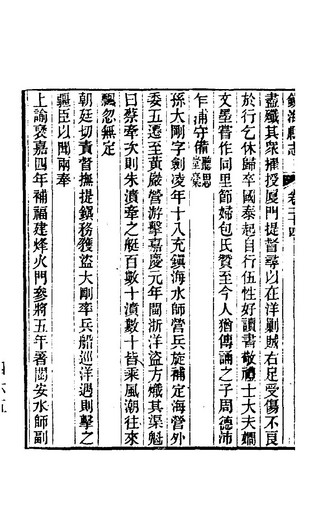 鎮海縣志 卷二十四
盡殲其眾擢授厦門提督尋以在洋剿賊右足受傷不良
於行乞休歸卒國泰起自行伍性好讀書敬禮士大夫嫺
文墨嘗作同里節婦包氏贊至今人猶傳誦之子周德沛
乍浦守備聽思堂稾
孫大剛字劍凌年十八充鎮海水師營兵旋補定海營外
委五遷至黃巖營游擊嘉慶元年閩浙洋盜方熾其渠魁
曰蔡牽次則朱濆牽之艇百數十濆數十皆乘風潮往來
飄忽無定
朝廷切責督撫提鎮務獲盜大剛率兵船巡洋遇則擊之
疆臣以聞兩奉
上諭褒嘉四年補福建烽火門參將五年署閩安水師副